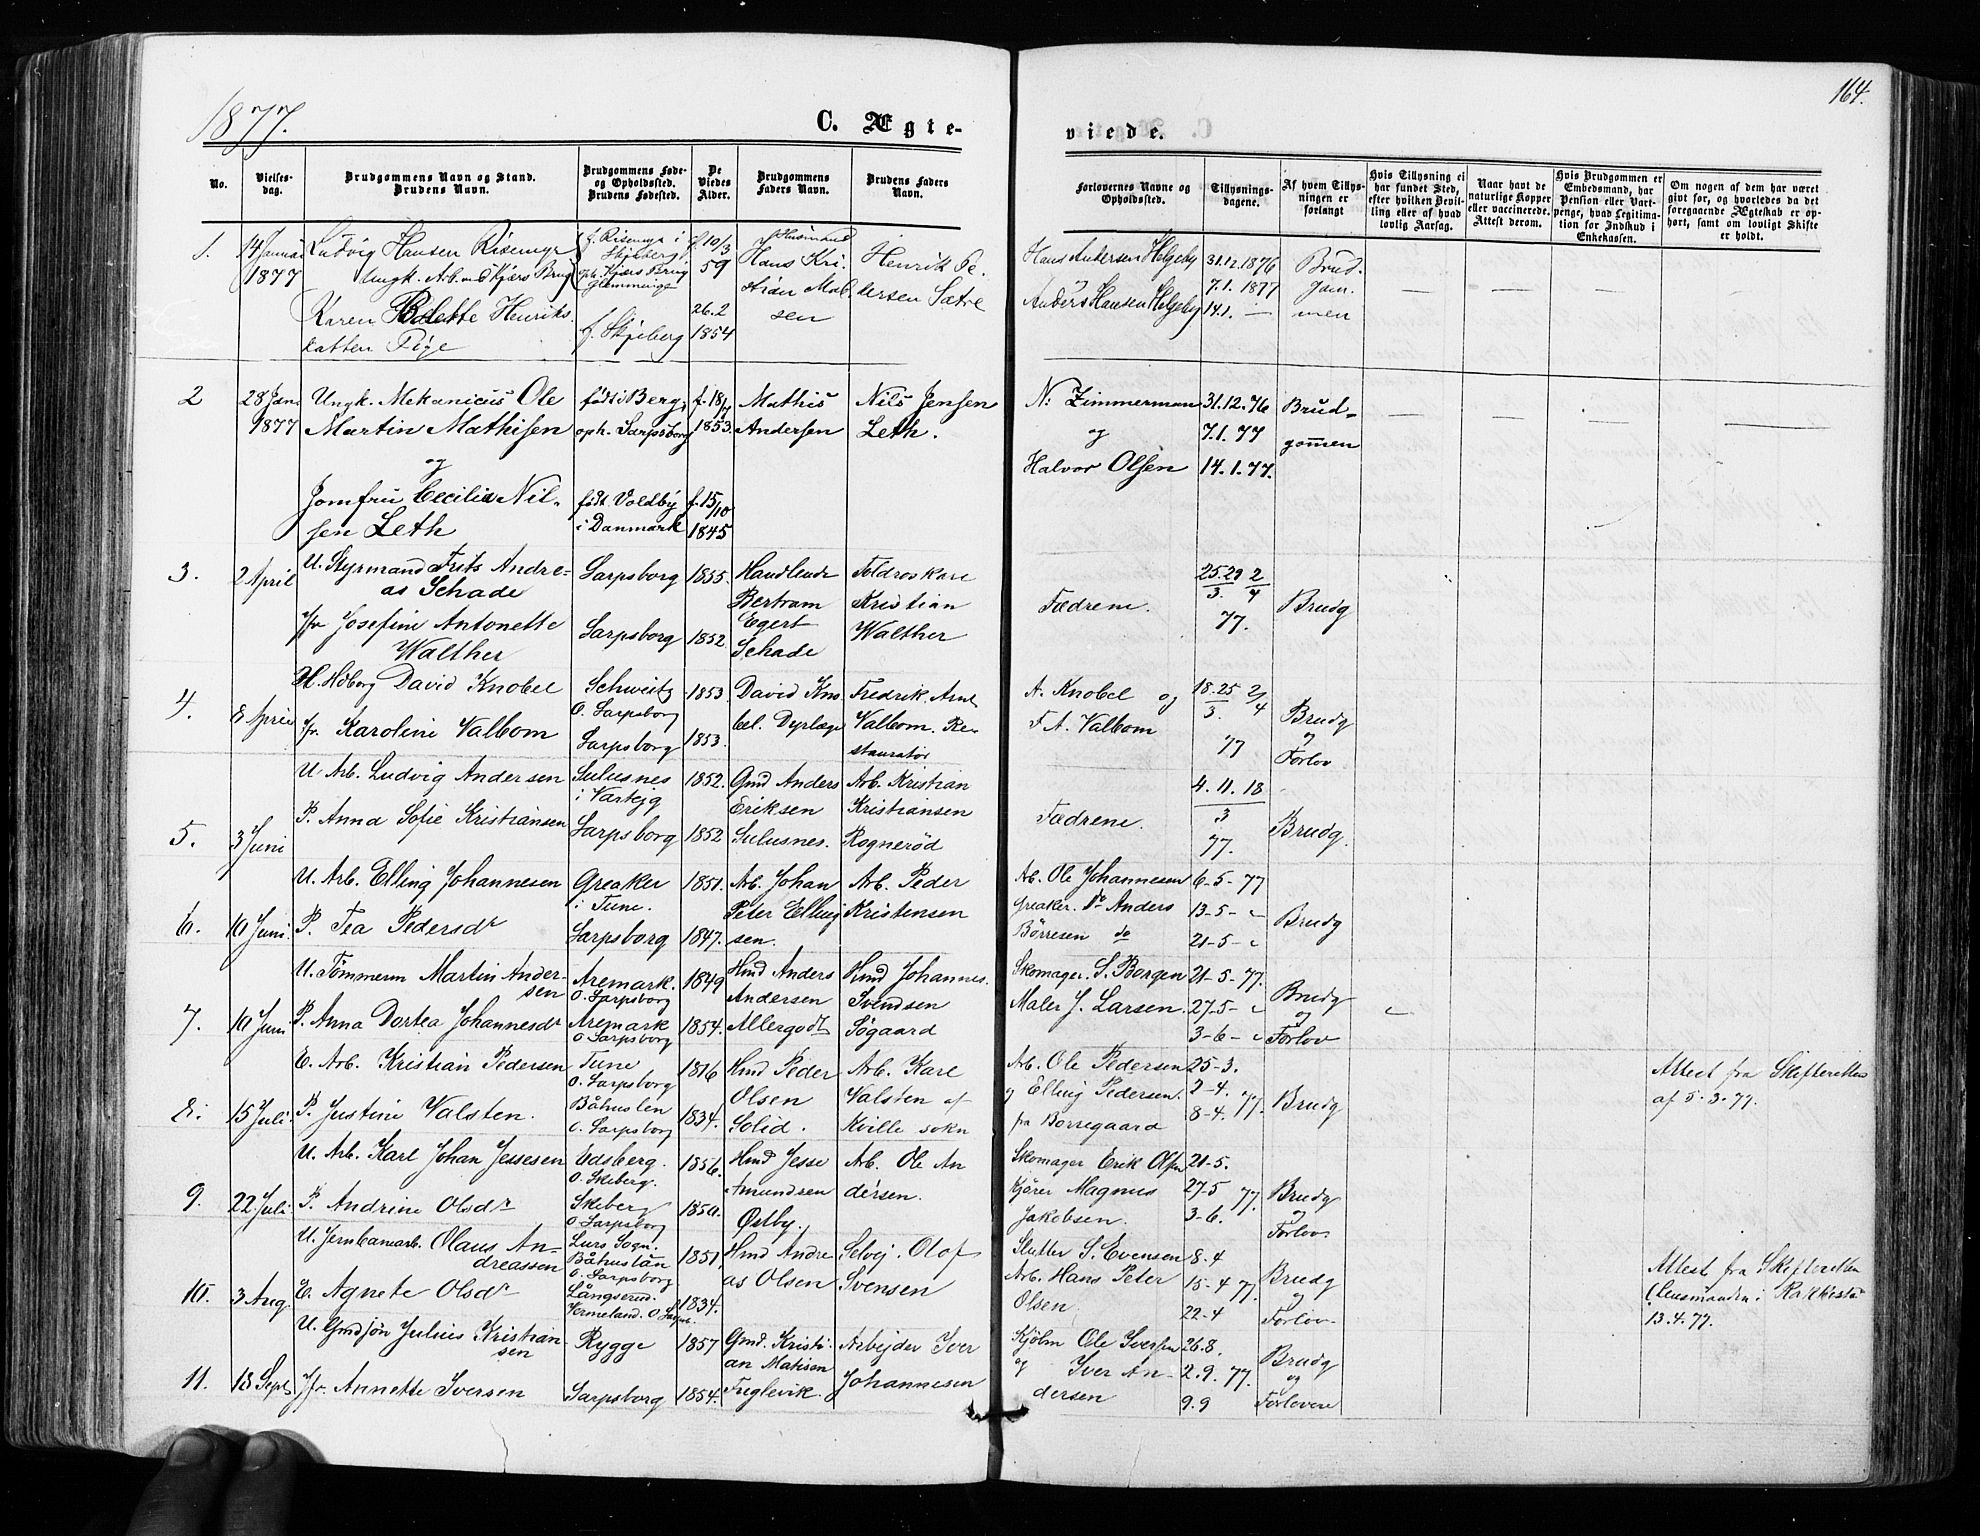 1877.
164.
C. Ægte-
viede.
No.
Vielses-
dag.
Brudgommens Navn og Stand.
Brudens Navn.
Brudgommens Føde-
og Opholdssted.
Brudens Fødested.
De
Viedes
Alder.
Brudgommens
Faders Navn.
Brudens Faders
Navn.
Forlovernes Navne og
Opholdssted.
Tillysnings-
dagene.
Af hvem Tillys-
ningen er
forlangt
Hvis Tillysning ei
har fundet Sted,
efter hvilken Bevil-
ling eller af hvad
lovlig Aarsag.
Naar havt de
naturlige Kopper
eller vaccinerede.
Attest derom.
Hvis Brudgommen er
Embedsmand, har
Pension eller Vart-
penge, hvad Legitima-
tion for Indskud i
Enkekassen.
Om nogen af dem har været
gift før, og hvorledes da det
foregaaende Ægteskab er op-
hørt, samt om lovligt Skifte
er holdt.
1.
14 Januar
1877
Ludvig Hansen Risenga
Ungk.
Karen Bolette Henriks
datter Pige
f. Risenga i
Skjeberg
f. Skjeberg
f 10/3
59
26.2
1854
Husmand
Hans Kri.
sen
Henrik Pe.
dersen Sætre
Hans Andersen Helgeby
Anders Hansen Helgeby
31.12.1876
7.1.1877
14.1. —
Brud.
gom.
men
2
28 Jan.
1877
Ungk. Mekanicus Ole
Martin Mathisen
og
Jomfru Cecilia Nil-
sen Leth
født i Berg,
oph. Sarpsborg
født Voldby
i Danmark
f. 18/7
1853.
f. 15/10
1845
Mathis
Andersen
Nils Jensen
Leth.
N: Zimmerman
og
Halvor Olsen
31.12.76
7.1.77
14.1.77.
Brud-
gommen
3.
2 April
U. Styrmand Frits Andre-
as Schade
Jfr Josefine Antonette
Walther
Sarpsborg
Sarpsborg
1855.
1852
Handlende
Bertram
Egert
Schade
Toldroskarl
Kristian
Walther
Fædrene.
25.29 2
3. 4
77.
Brudg
4.
8 April
David Knobel
Jfr. Karoline Valbom
Schweitz
O. Sarpsborg
Sarpsborg
1853
1853.
David Kno
bel. Dyrlæge
Fredrik Arnt
Valbom. Re-
stauratør
A. Knobel og
F. A. Valbom
18.25 2/4
3.
77
Brudg
og
Forlov
5.
3 Juni
U Arb. Ludvig Andersen
P. Anna Sofie Kristiansen
Sulusnes
i Varteig
Sarpsborg
1852.
1852
Gmd Anders
Eriksen
Sulusnes.
Arb. Kristian
Kristiansen
Rognerød
Fædrene.
4. 11. 18
3
77.
Brudg.
6.
10 Juni.
U. Arb. Elling Johannesen
P. Tea Pedersdr
Greaker
i Tune.
Sarpsborg
1851.
1847.
Arb. Johan
Peter Elling
sen.
Arb. Peder
Kristensen
Arb. Ole Johannesen
Greaker. Do Anders
Børresen do
6-5-77
13-5-
21-5-
Brudg
7.
10 Juni
U. Tømmerm Martin Ander-
sen
P. Anna Dortea Johannesdr
Aremark.
O. Sarpsborg
Aremark
O. Sarpsborg
1849
1854.
Hmd Anders
Andersen
Allergodt
Hmd Johannes.
Svendsen
Søgaard
Skomager. S. Borgen
Maler J. Larsen.
21-5-77.
27-5-
3-6-
Brudg
og
Forlov
8.
15 Juli.
E. Arb. Kristian Pedersen
P. Justine Valsten.
Tune
O. Sarpsborg
Båhuslen
O. Sarpsborg
1816
1834.
Hmd Peder
Olsen
Solid.
Arb. Karl
Valsten af
Kville sokn
Arb. Ole Pedersen
og Elling Pedersen.
fra Borregaard
25-3.
2-4. 77.
8-4.
Brudg
Attest fra Skifteretten
af 5.3.77.
9.
22 Juli.
U. Arb. Karl Johan Jessesen
P. Andrine Olsdr
Edsberg.
O. Skeberg.
Skeberg
O. Sarpsborg
1856.
1850.
Hmd Jesse
Amundsen
Østby.
Arb. Ole An
dersen.
Skomager Erik Olsen
Kjører Magnus
Jakobsen.
21-5.
27-5 77.
3-6.
Brudg
og
Forlov
10.
3 Aug.
U. Jernbanearb. Olaus An-
dreassen
E. Agnete Olsdr
Lurs Sogn.
Båhuslän
O. Sarpsborg
Långserud.
Vermeland.
1851,
1834.
Hmd Andre
as Olsen
Selvej. Olof
Svensen
Slutter S. Evensen
Arb. Hans Peter
Olsen.
8-4
15-4 77.
22-4
Brudg
og
Forlov.
Attest fra Skifteretten
(Lensmanden i Rakkestad
13.4.77.
11.
18 Sept
U. Gmdsøn Julius Kristian-
sen
Jfr. Annette Iversen
Rygge
Sarpsborg
1857
1854.
Gmd. Kristi-
an Matisen
Fuglevik.
Arbejder Iver
Johannesen
Kjøbm Ole Iversen
og Iver An-
dersen
26.8.
2.9. 77.
9.9
Brudg
og
Forlovere